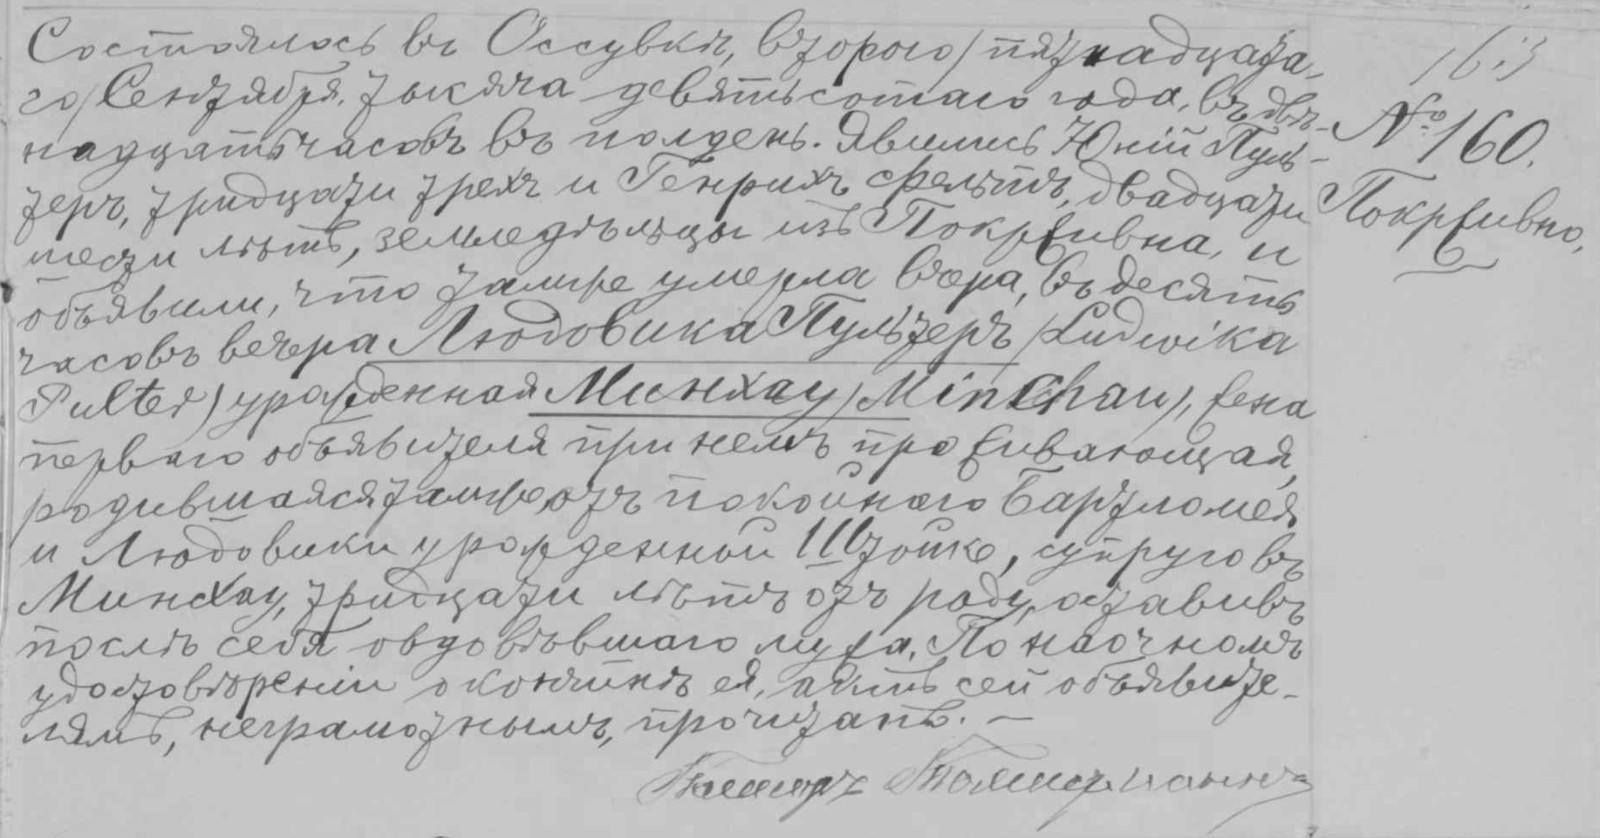 Состоялось въ Оссувкѣ, второго/пятнадцата-
го/Сентября, тысяча девятьсотаго года, въ двѣ-
надцать часовъ въ полдень. Явились Юлій Пуль-
теръ, тридцати трехъ и Генрихъ Фельтъ, двадцати
шести лѣтъ, земледѣльцы изъ Покрживна, и
объявили, что тамже умерла вчера, въ десять
часовъ вечера Людовика Пультеръ /Ludwika
Pulter/ урожденная Минхау /Minchau/, жена
перваго объявителя при немъ проживающая,
родившаяся тамже, отъ покойнаго Бартломея
и Людовики урожденной Штойке, супруговъ
Минхау, тридцати лѣтъ отъ роду, оставивъ
послѣ себя овдовѣвшаго мужа. По наочномъ
удостовѣреніи о кончинѣ ея, актъ сей объявите-
лямъ, неграмотнымъ, прочитанъ. —
Пасторъ
163
№ 160.
Покрживно,